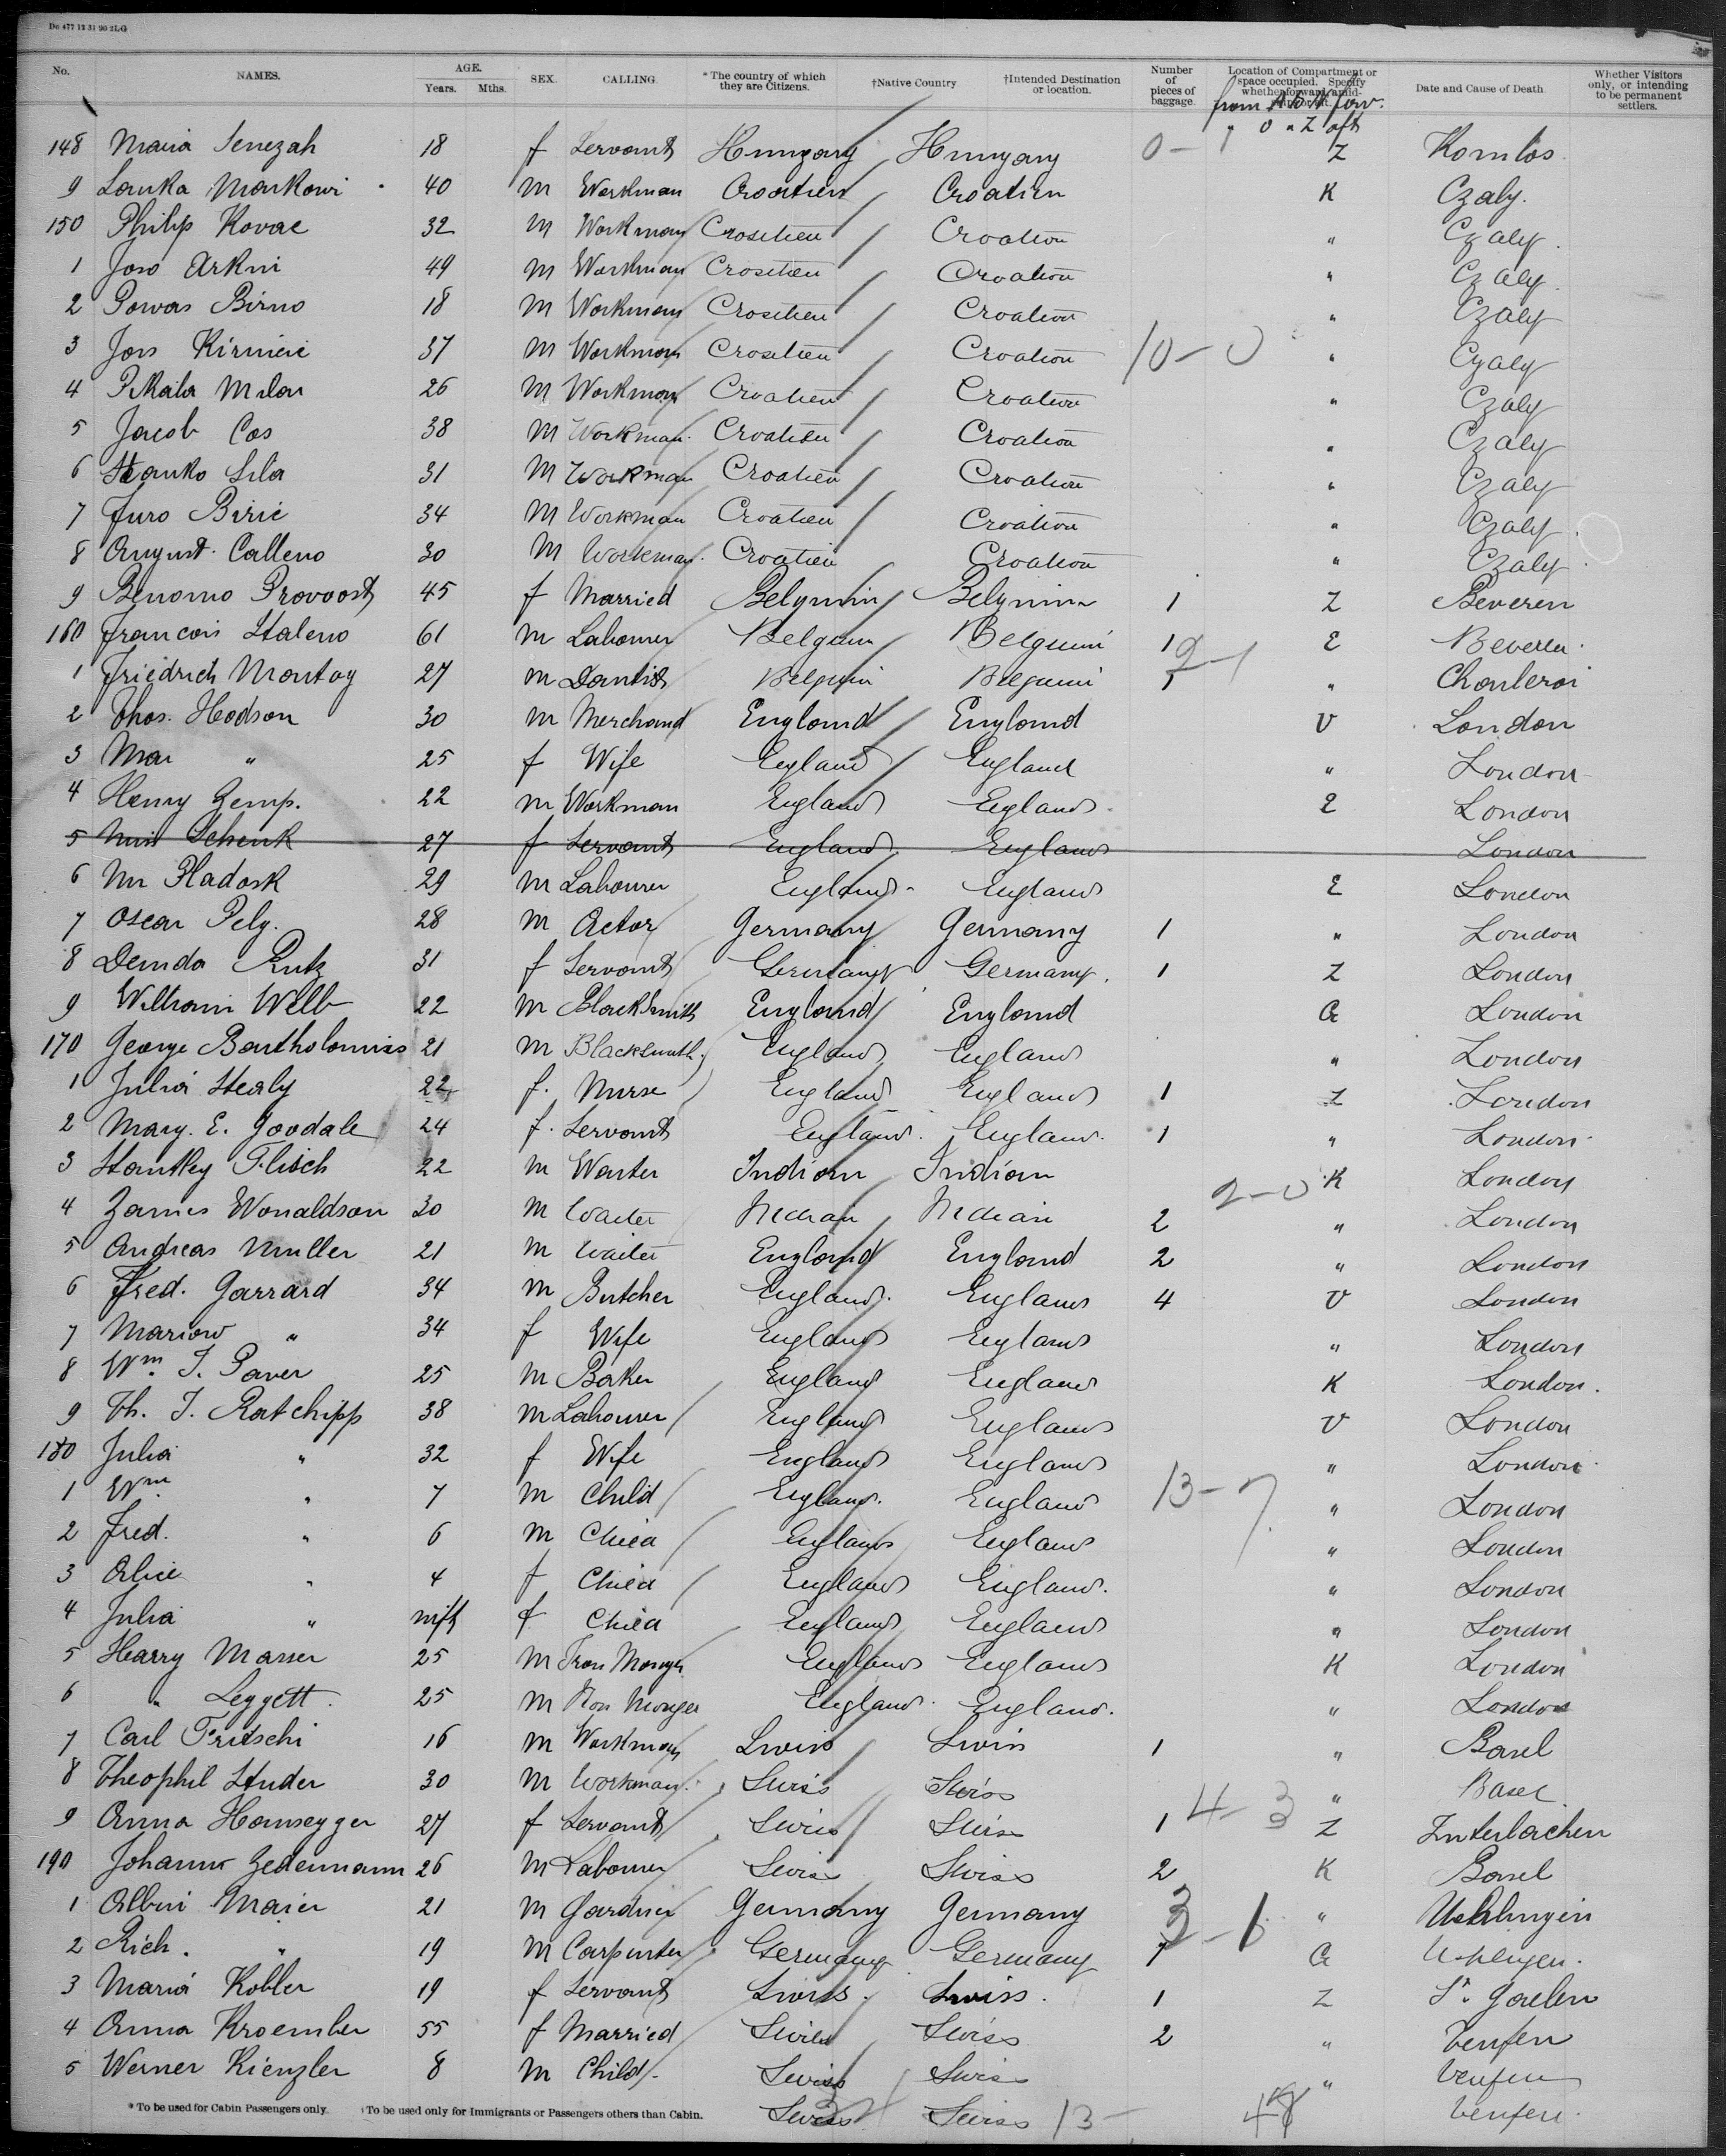 Do 477 12 31 90 2LG
No. NAMES. AGE. Years. Mths. SEX. CALLING. *The country of which they are Citizens. †Native Country †Intended Destination or location. Number of pieces of baggage. Location of Compartment or space occupied. Specify whether forward, amid- Date and Cause of Death. Whether Visitors only, or intending to be permanent settlers.
from A to N forw.
" O " Z aft
148 Maria Senezah 18 f Servant Hungary Hungary 0-1 Z Komlos
9 Lanka Markowi 40 m Workman Croatien Croatien K Czaly.
150 Philip Kovac 32 M Workman Croatien Croatien " Czaly.
1 Joso Arkni 49 M Workman Croatien Croatien " Czaly.
2 Powas Birno 18 M Workman Croatien Croatien " Czaly
3 Joss Kirnicic 37 M Workman Croatien Croatien 10-0 " Czaly
4 Pikala Milan 26 M Workman Croatien Croatien " Czaly
5 Jacob Cos 38 M Workman. Croatien Croatien " Czaly
6 Stanko Lila 31 M Workman Croatien Croatien " Czaly
7 Juro Biric 34 M Workman Croatien Croatien " Czaly.
8 August Calleno 30 M Workman. Croatien Croatien " Czaly.
9 Benomo Provoost 45 f Married Belgium Belgium 1 Z Beveren
160 Francois Staleno 61 m Labourer Belgium Belgium 1 E Beveren.
2-1
1 Friedrich Montag 27 m Dentist Belgium Belgium 1 " Charleroi
2 Thos. Hodson 30 m Merchand England England V London
3 Mar " 25 f Wife England England " London
4 Henry Zemp. 22 m Workman England England. E London
5 Miss Schenk 27 f Servant England England London
6 Mr Pladosk 29 M Labourer England England E London
7 Oscar Pely. 28 M Actor Germany Germany 1 " London
8 Demda Rutz 31 f Servant Germany Germany. 1 Z London
9 William Webb 22 M Blacksmith England England G London
170 George Bartholomiss 21 M Blacksmith England England " London
1 Julia Healy 22 f. Nurse England England 1 Z London
2 Mary. E. Goodale 24 f. Servant England. England. 1 " London
3 Stantley Flisch 22 m Waiter Indian Indian 2-0 K London
4 James Wonaldson 30 M Waiter Indian Indian 2 " London
5 Andreas Muller 21 M Waiter England England 2 " London
6 Fred. Garrard 34 M Butcher England. England 4 V London
7 Mariow " 34 f Wife England England " London
8 Wm. J. Paver 25 M Baker England England K London.
9 Th. J. Ratchipp 38 M Labourer England England V London
180 Julia " 32 f Wife England England " London
1 Wm " 7 M Child England. England 13-7 " London
2 Fred. " 6 M Child England England " London
3 Alice " 4 f Child England England. " London
4 Julia " inft f Child England England " London
5 Harry Marser 25 M Iron Monger England England K London
6 " Leggett. 25 M Iron Monger England. England. " London
7 Carl Fritschi 16 M Workman Swiss Swiss 1 " Basel
8 Theophil Studer 30 M Workman. Swiss Swiss " Basel
9 Anna Hamsegger 27 f Servant Swiss Swiss 1 4-3 Z Interlachen
190 Johann Zedermann 26 M Labourer Swiss Swiss 2 K Basel
1 Albin Maier 21 M Gardner Germany Germany 3-1 " Uehlingen
2 Rich. " 19 M Carpenter Germany Germany 1 G Uehlingen.
3 Maria Kobler 19 f Servant Swiss. Swiss. 1 Z St. Gaelen
4 Anna Kroember 55 f Married Swiss Swiss 2 " Tenfen
5 Werner Kienzler 8 M Child. Swiss Swiss " Tenfen
Swiss Swiss 13- Tenfen.
*To be used for Cabin Passengers only. †To be used only for Immigrants or Passengers others than Cabin.